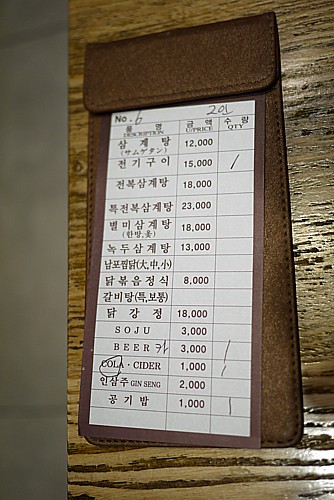 No. 6 2인
품 명 금 액 수 량
DESCRIPTION U/PRICE QTY
삼 계 탕 12,000
(サムゲタン)
전 기 구 이 15,000 /
전복삼계탕 18,000
특전복삼계탕 23,000
별미삼계탕 18,000
(한방, 옻)
녹두삼계탕 13,000
남포찜닭(大,中,小)
닭볶음정식 8,000
갈비탕(특,보통)
닭 강 정 18,000
SOJU 3,000
BEER 카 3,000 /
COLA · CIDER 1,000 /
인삼주 GIN SENG 2,000
공 기 밥 1,000 /